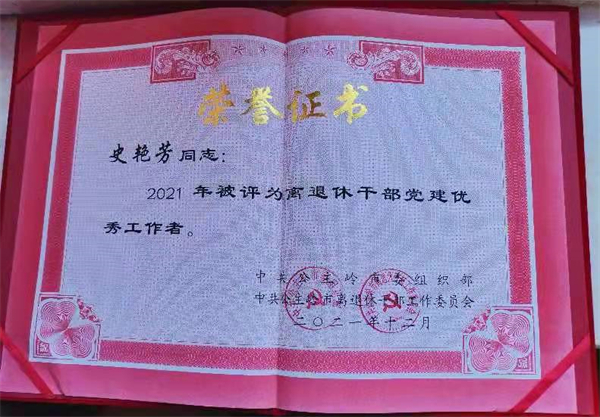 荣誉证书
史艳芳同志:
2021 年被评为离退休干部党建优
秀工作者。
中共公主岭市委组织部
中共公主岭市离退休干部工作委员会
二〇二一年十二月